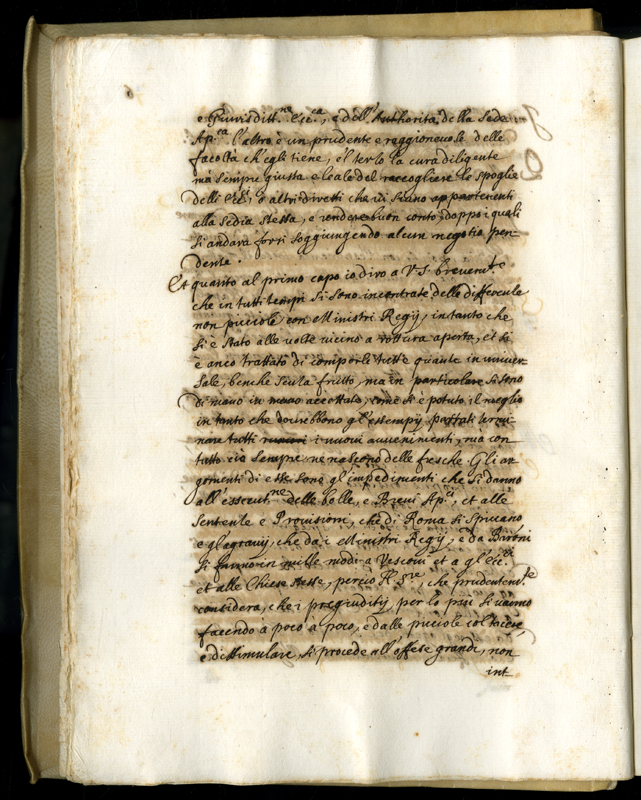 e Giurisditt.ne Ecc.ca, e dell'Authorità della Sede
Ap.ca l'altro è un prudente e raggioneuole delle
facoltà ch'egli tiene, e'l terzo la cura diligente
mà sempre giusta e leale del raccogliere le spoglie
delli Ecc.ci, o altri diretti che ui siano appartenenti
alla Sedia stessa, e rendere buon conto, doppo i quali
si andarà forsi soggiungendo alcun negotio pen-
dente.
Et quanto al primo capo io dirò a V.S. breuem.te
che in tutti tempi si sono incontrate delle difficoltà
non picciole con Ministri Regij, in tanto che
si è stato alle uolte uicino a rottura aperta, et si
è anco trattato di comporle tutte quante in uniuer-
sale, benche senza frutto, ma in particolare si sono
di mano in mano accettate, come si è potuto il meglio
in tanto che dourebbono gl'essempij passati termi-
nare tutti i nuoui auuenimenti, ma con
tutto ciò sempre ne nascono delle fresche Gli ar
gomenti di esse sono gl'impedimenti che si danno
all'essecut.ne delle bolle, e Breui Ap.ci, et alle
sentenze e Prouisioni, che di Roma si spiccano
e gl'agrauij, che da i Ministri Regij, e da Baroni
si fanno in mille modi a Vescoui et a gl'Ecc.ci
et alle Chiese stesse, perciò che prudentem.te
considera, che i pregiuditij, per lo più si uanno
facendo à poco a poco, e dalle picciole col tacere
e dissimulare, si procede all'offese grandi, non
int